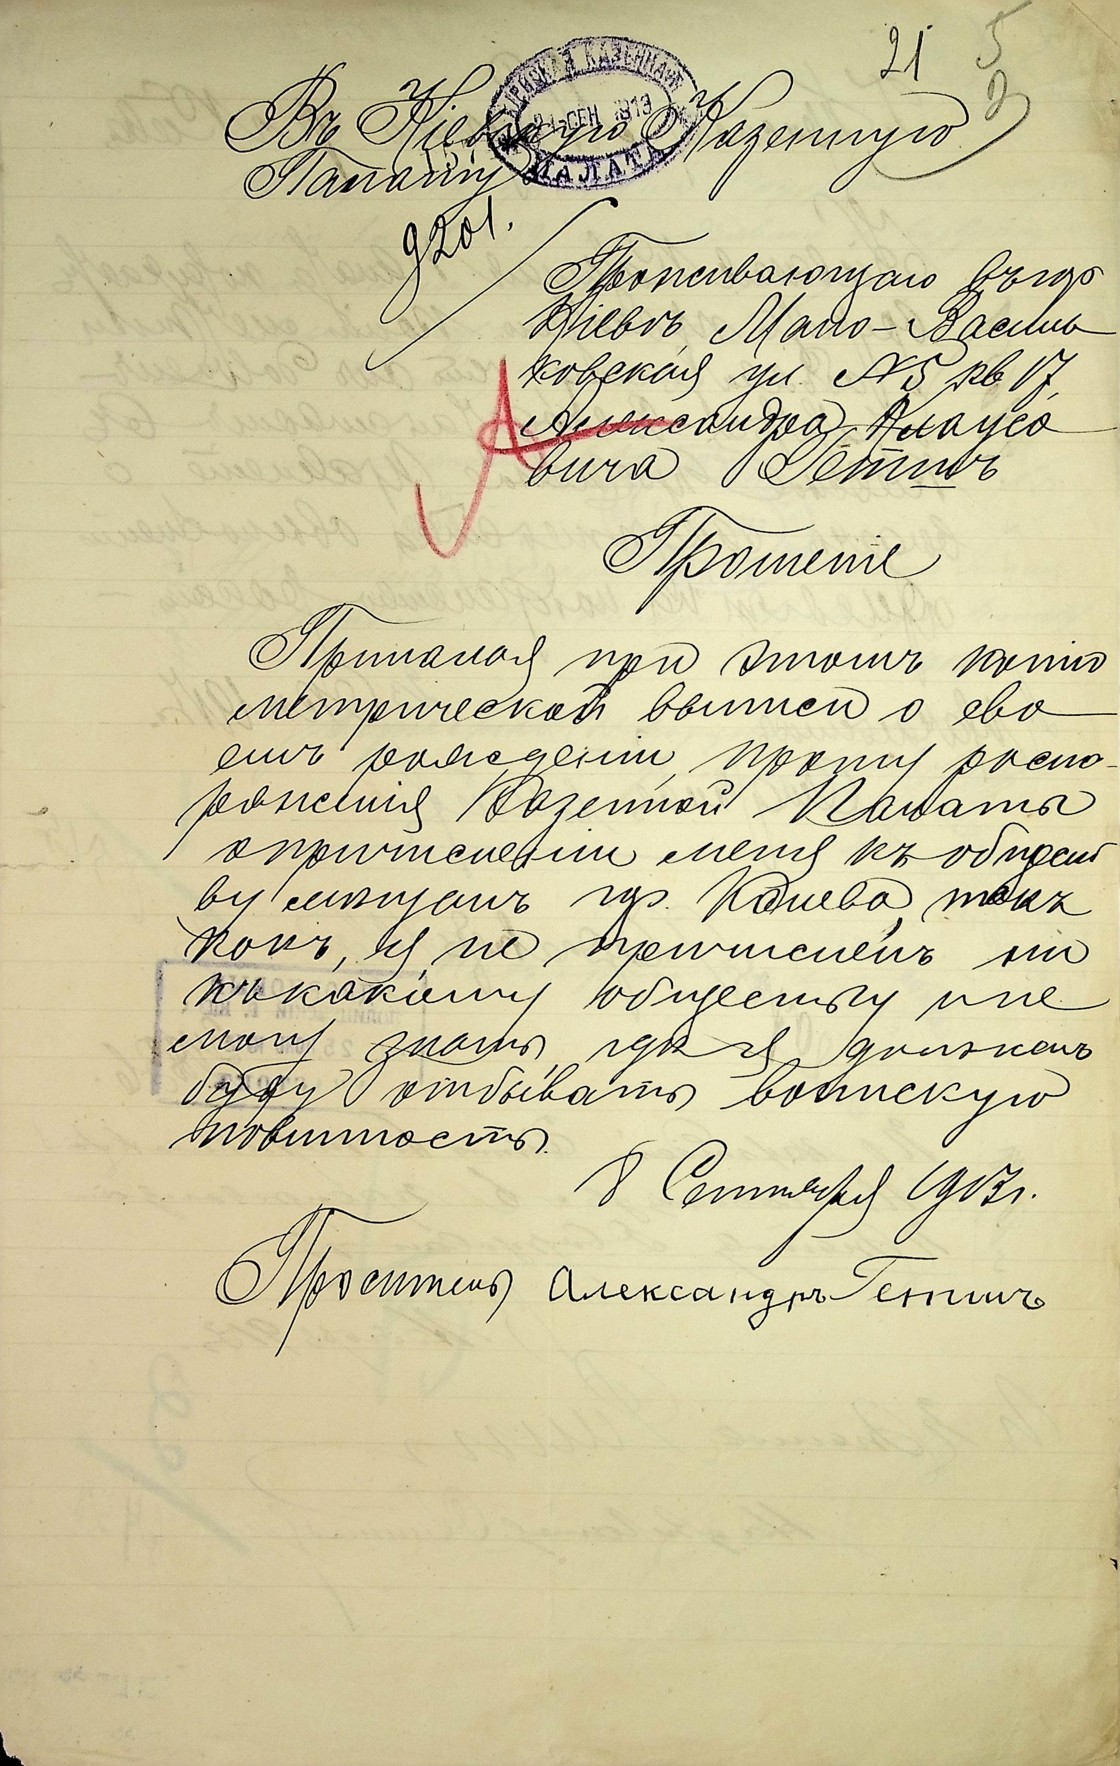 21 5
2
КАЗЕННАЯ
21 СЕН 1913
ПАЛАТА
Въ Кіевскую Казенную
Палату
9201.
Проживающаго въ гор
Кіевѣ, Мало-Василь
ковская ул. №5 кв 17,
Александра Клаусо
вича Гетинъ
Прошеніе
Прилагая при этомъ копію
метрической выписи о сво
емъ рожденіи, прошу распо-
ряженія Казенной Палаты
о причисленіи меня къ общест
ву мѣщанъ гор. Канева, такъ
какъ, я не причисленъ ни
къ какому обществу и не
могу знать гдѣ я долженъ
буду отбывать воинскую
повинность.
8 Сентября 1913 г.
Проситель Александръ Гетинъ